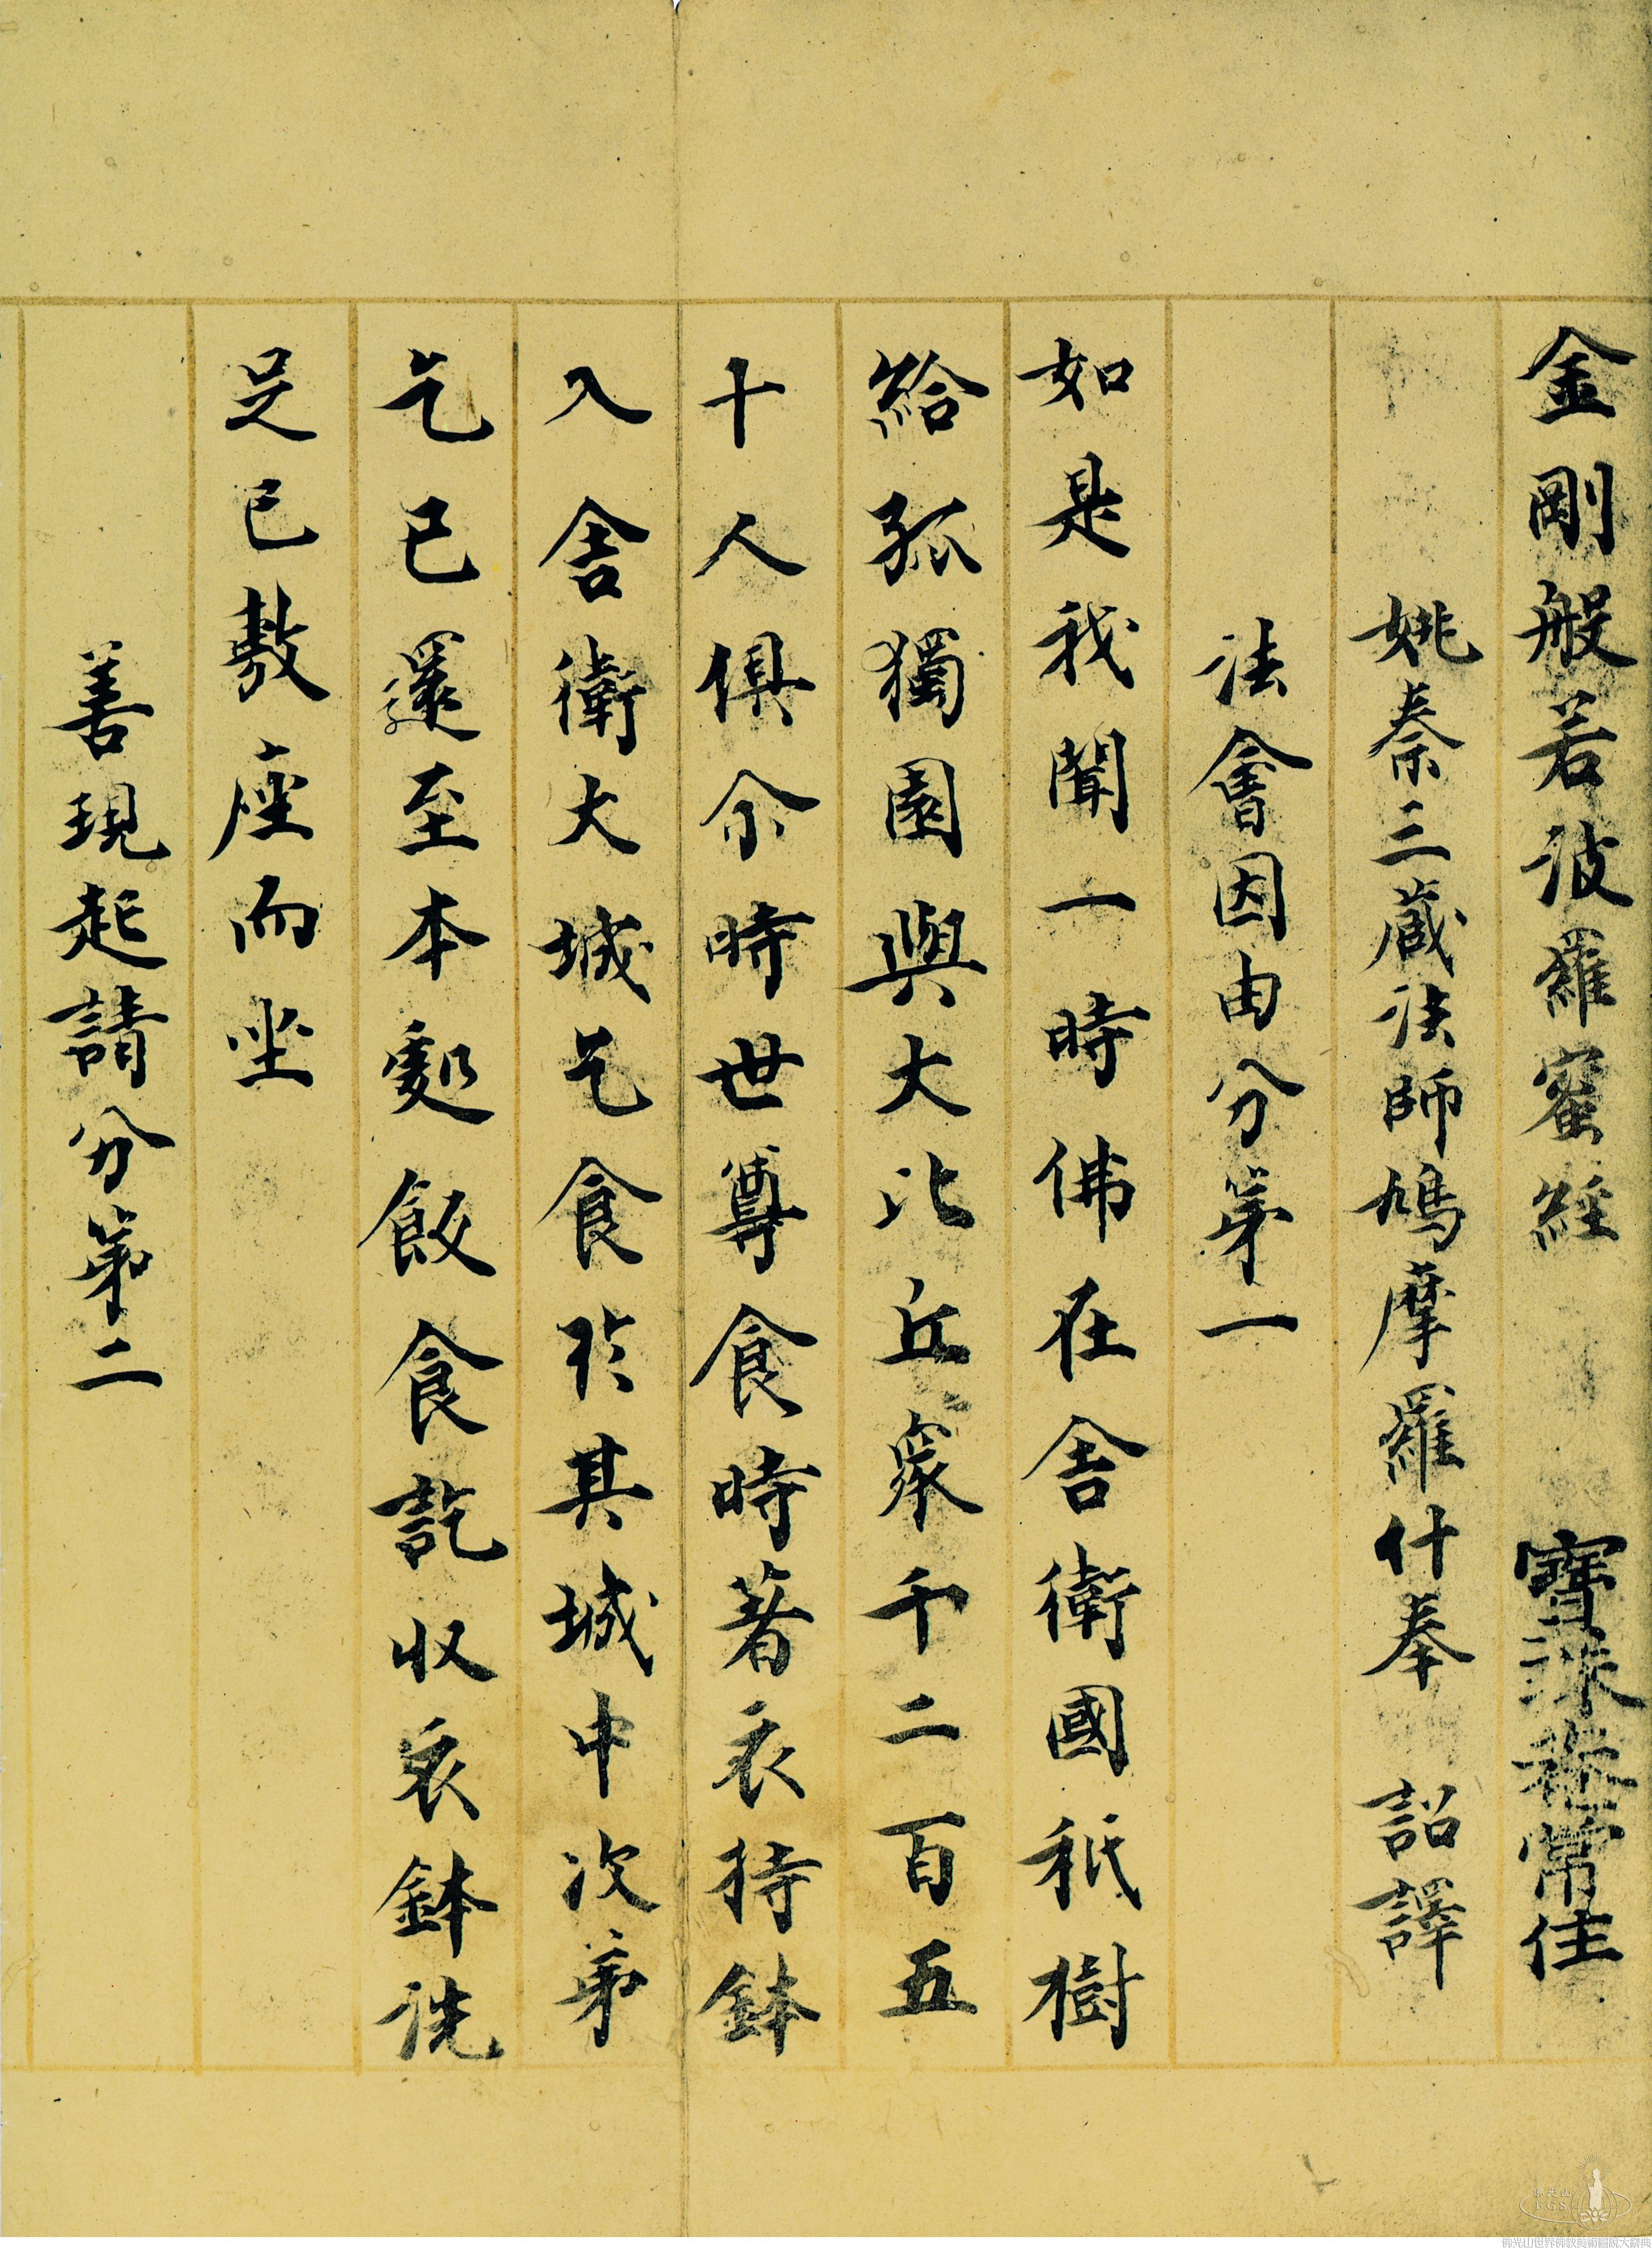 金剛般若波羅蜜經 寶 常住
姚秦三藏法師鳩摩羅什奉 詔譯
法會因由分第一
如是我聞一時佛在舍衛國祇樹
給孤獨園與大比丘衆千二百五
十人俱尒時世尊食時著衣持鉢
入舍衛大城乞食於其城中次第
乞已還至本處飯食訖収衣鉢洗
足已敷座而坐
善現起請分第二
佛光山
F.G.S
佛光山世界佛教美術圖說大辭典